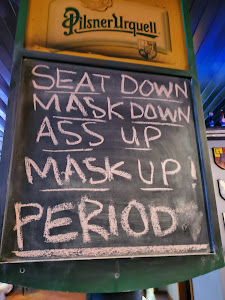 Pilsner Urquell
SEAT DOWN
MASK DOWN
ASS UP
MASK UP!
PERIOD